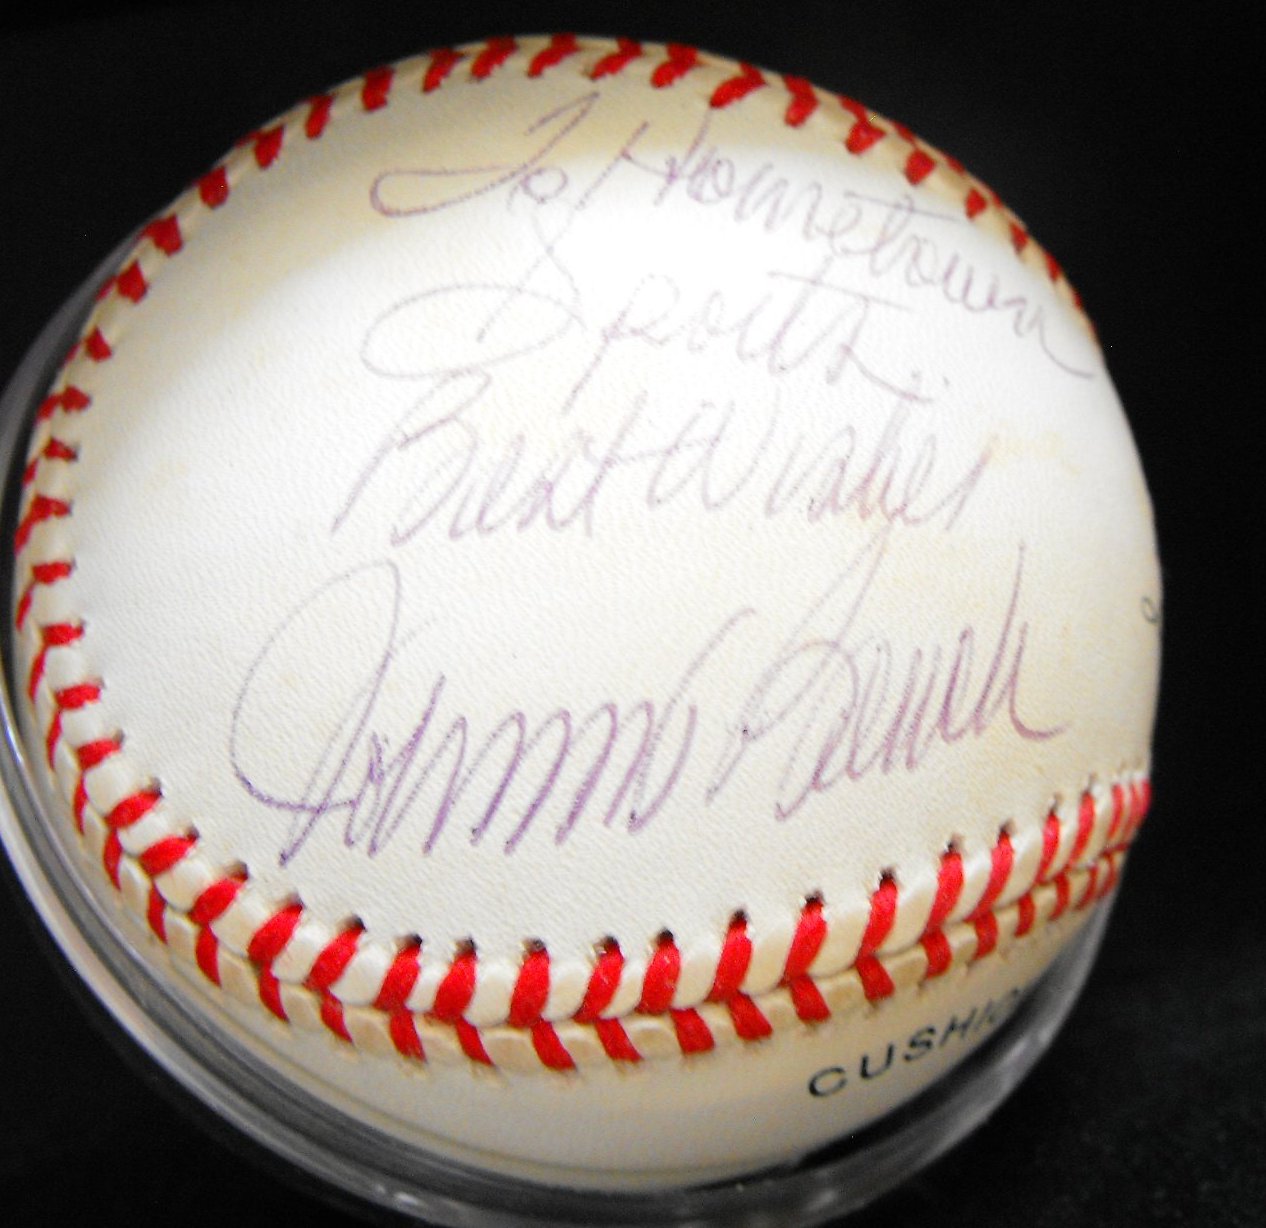 To Hometown
Sports..
Best Wishes
Johnny Bench
CUSHIO